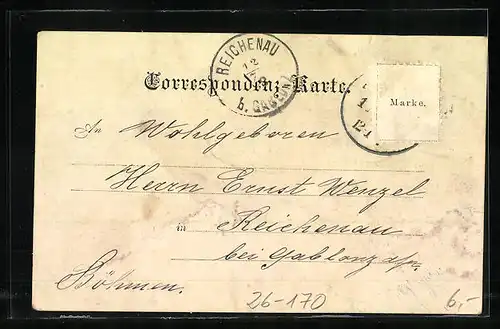 REICHENAU
12
b. GABLONZ
Correspondenz-Karte.
Marke.
An Wohlgeboren
Herrn Ernst Wenzel
in Reichenau
bei Gablonz a/
Böhmen.
26-170
6,-